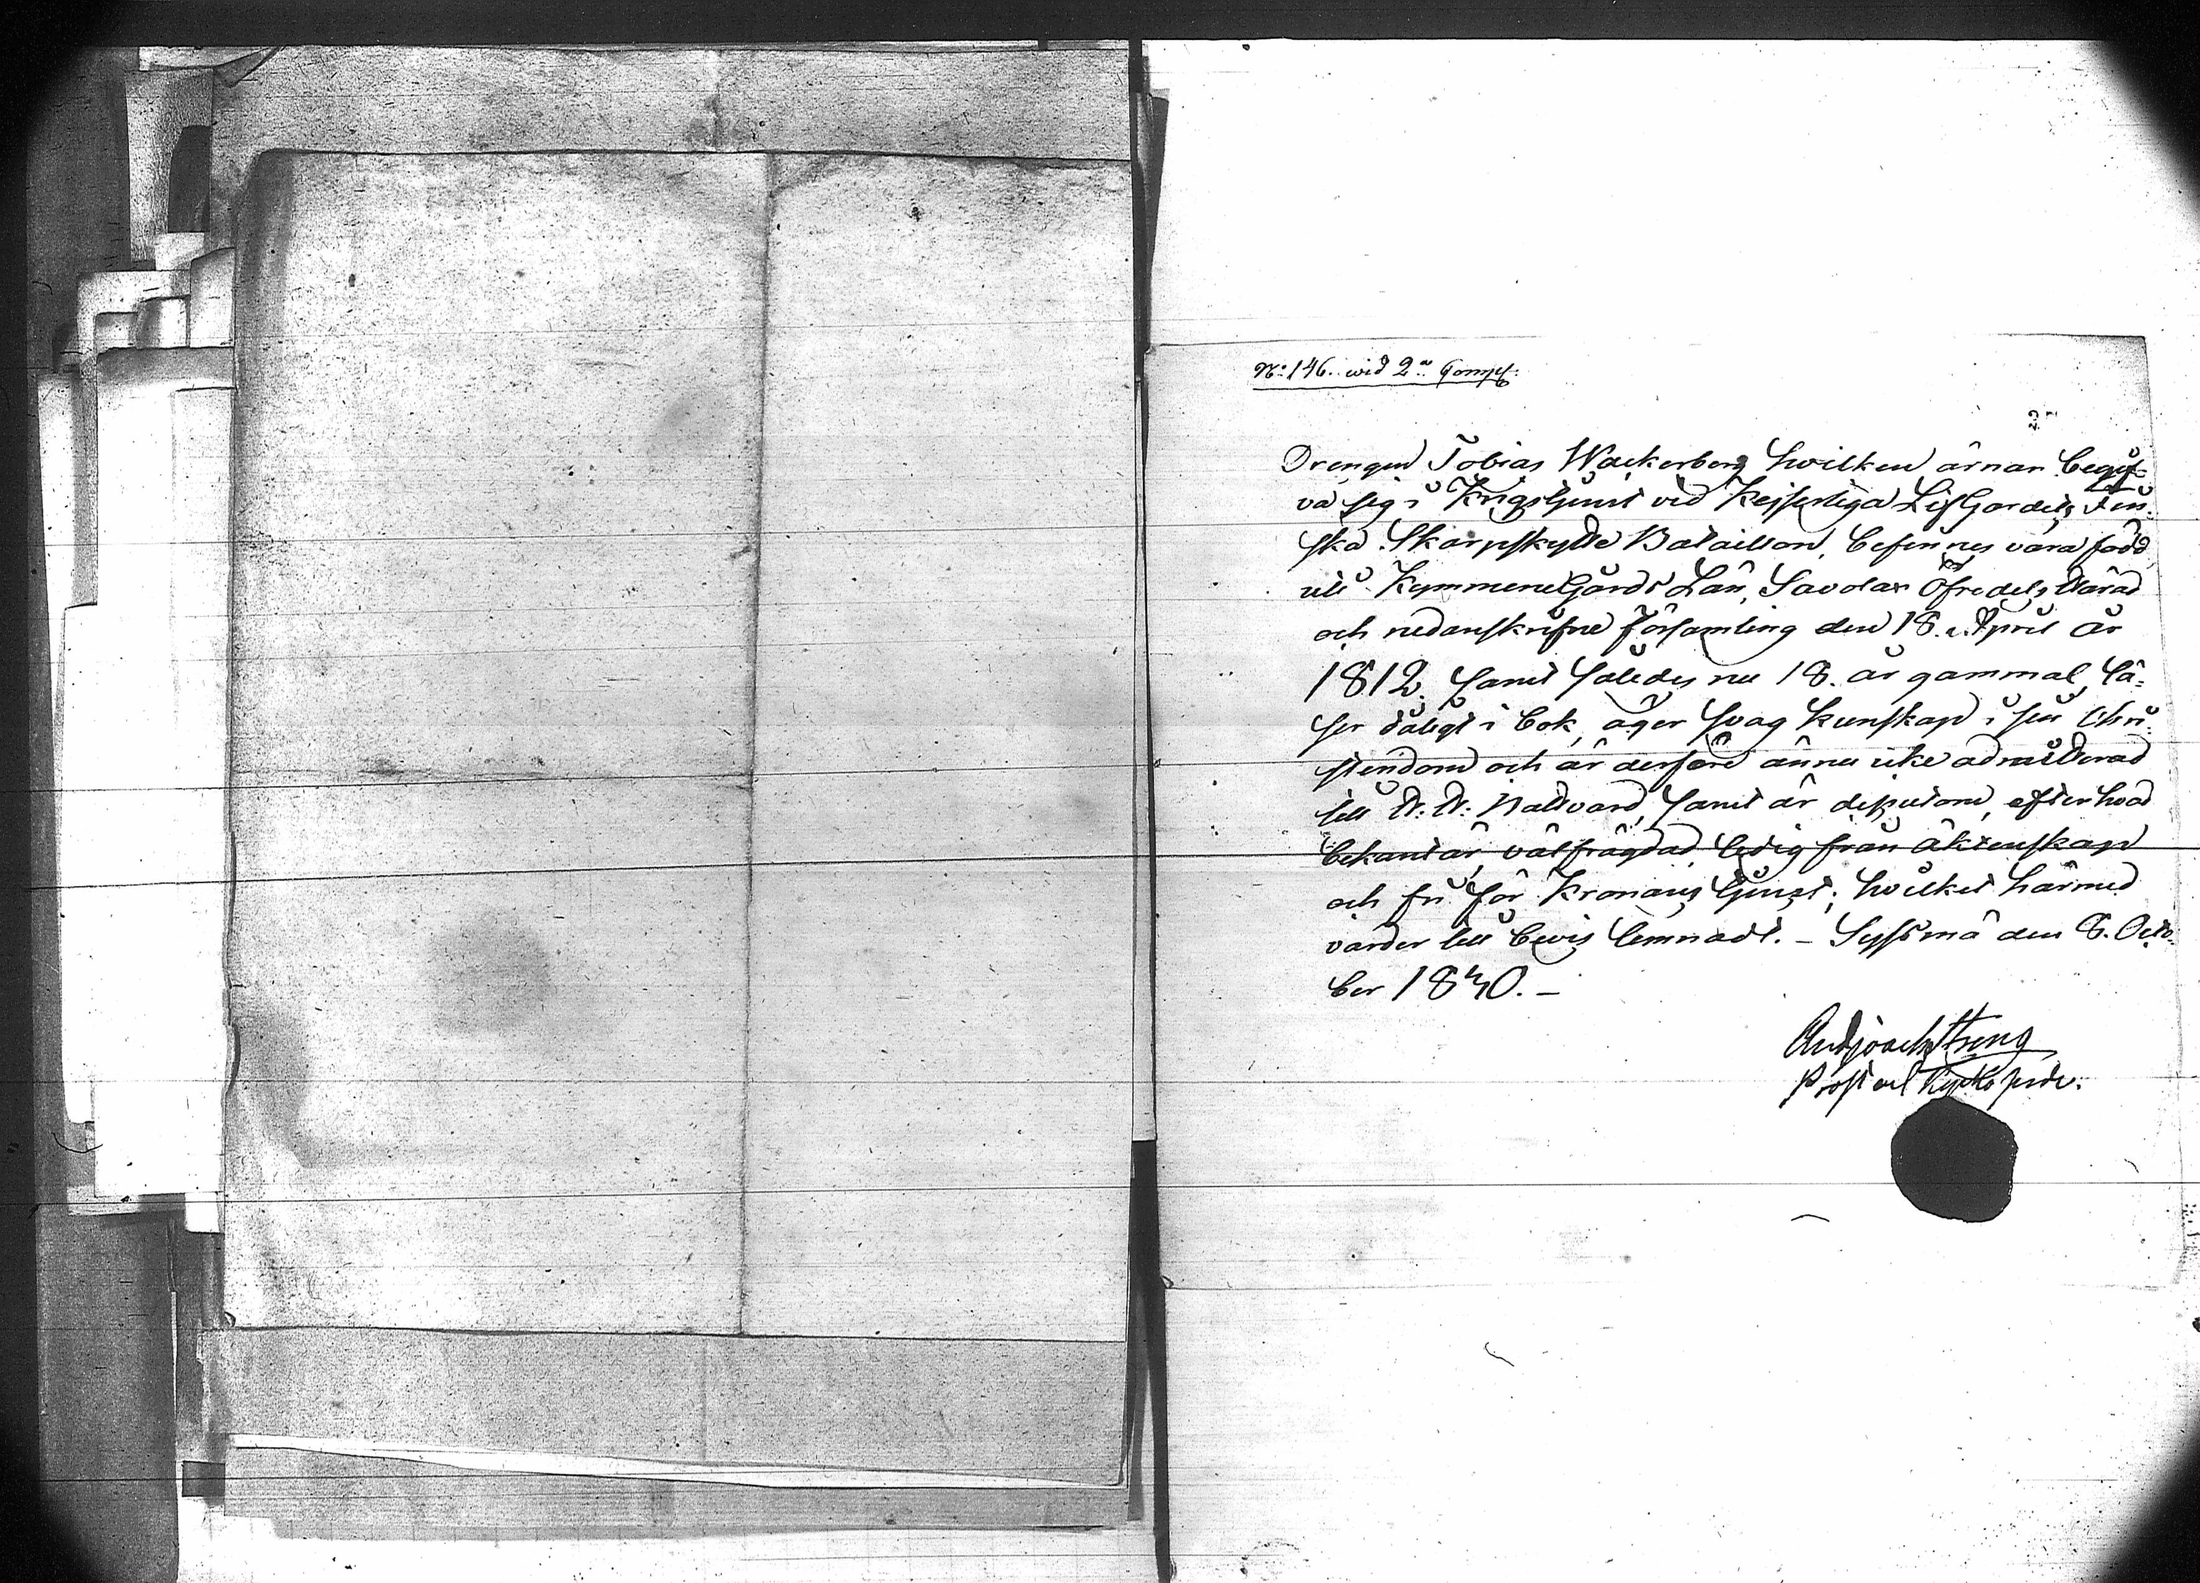 No: 146. wid 2:a Comp:
23
Drengen Tobias Wackerberg hvilken ärnar begif-
va sig i Krigstjenst vid Kejserliga LifGardets Fin-
ska Skarpskytte Bataillon, befinnes vara född
uti KymmeneGårds Län, Savolax Öfredels Härad
och nedanskrifne Församling den 18. April år
1812. samt således nu 18. år gammal, lä-
ser dåligt i bok, äger svag kunskap i sin Chri-
stendom och är derföre ännu icke admitterad
till H. H. Nattvard, samt är dessutom, efter hvad
bekant är, välfrägdad, ledig från äktenskap
och fri för Kronans tjenst; hvilket härmed
varder till bevis lemnadt. – Syssmä den 8. Octo-
ber 1830. –
And Joach Streng
Prost och Kyrkoherde.